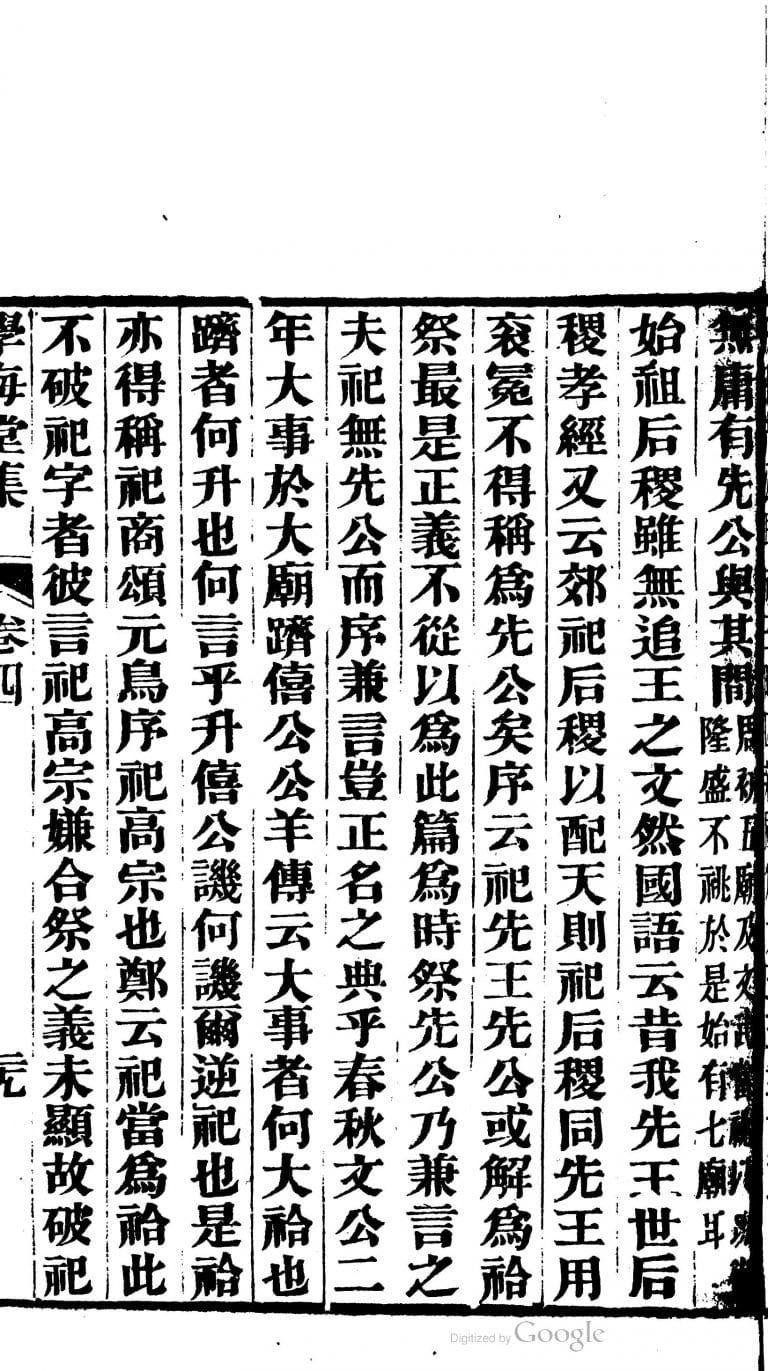 無庸有先公與其間
隆盛不祧於是始有七廟耳
始祖后稷雖無追王之文然國語云昔我先王世后
稷孝經又云郊祀后稷以配天則祀后稷同先王用
袞冕不得稱爲先公矣序云祀先王先公或解爲祫
祭最是正義不從以爲此篇爲時祭先公乃兼言之
夫祀無先公而序兼言豈正名之典乎春秋文公二
年大事於大廟躋僖公公羊傳云大事者何大祫也
躋者何升也何言乎升僖公譏何譏爾逆祀也是祫
亦得稱祀商頌元鳥序祀高宗也鄭云祀當爲祫此
不破祀字者彼言祀高宗嫌合祭之義未顯故破祀
學海堂集 卷四 元
Digitized by Google